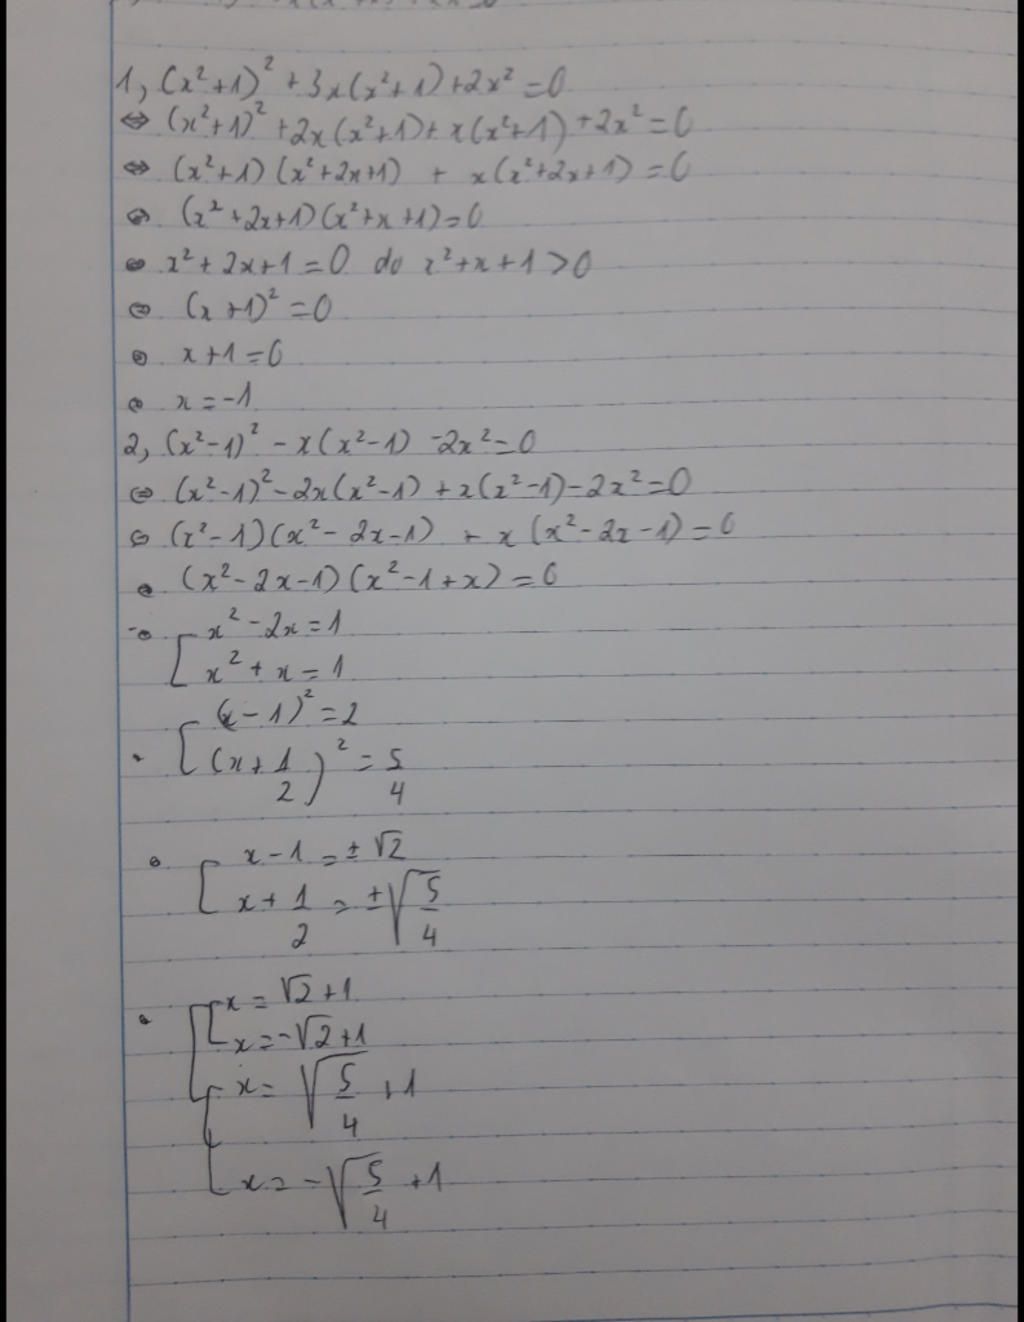 1, (x²+1)² + 3x(x²+1)+2x² = 0
⇔ (x²+1)² +2x(x²+1)+ x(x²+1) +2x² = 0
⇔ (x²+1) (x²+2x+1) + x(x²+2x+1) = 0
⇔ (x²+2x+1)(x²+x+1)=0
⇔ x²+2x+1=0 do x²+x+1>0
⇔ (x+1)²=0
⇔ x+1=0
⇔ x=-1
2, (x²-1)² - x(x²-1) -2x²=0
⇔ (x²-1)²-2x(x²-1) +x(x²-1)-2x²=0
⇔ (x²-1)(x²-2x-1) + x(x²-2x-1)=0
⇔ (x²-2x-1)(x²-1+x)=0
⇔ [ x²-2x=1
x²+x=1
[ (x-1)²=2
(x+1/2)²=5/4
[ x-1=±√2
x+1/2=±√(5/4)
[ x=√2+1
x=-√2+1
[ x=√(5/4)+1
x=-√(5/4)+1